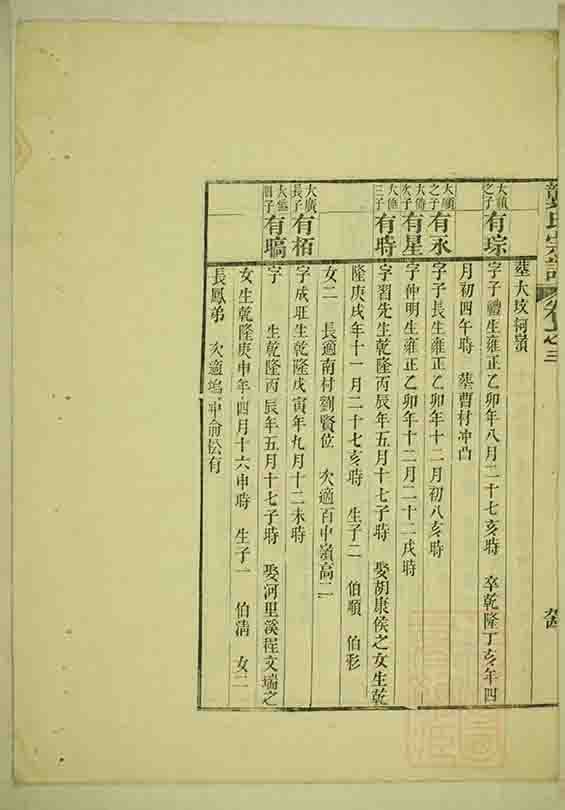 氏宗譜 卷之三
墓大坟
大
之子
有琮
字子禮生雍正乙卯年八月二十七亥時 卒乾隆丁亥年四
月初四午時 墓曹村冲凸
大順
之子
有永
字子長生雍正乙卯年十二月初八亥時
大
次子
有星
字仲明生雍正乙卯年十二月二十二戌時
大
三子
有時
字習先生乾隆丙辰年五月十七子時 娶胡康侯之女生乾
隆庚戌年十一月二十七亥時 生子二 伯順 伯彩
女二 長適南村劉賢位 次適百中嶺高二
大廣
長子
有栢
字成旺生乾隆戊寅年九月十二未時
大
四子
有暠
字 生乾隆丙辰年五月十七子時 娶河里溪程文瑞之
女生乾隆庚申年四月十六申時 生子一 伯清 女二
長鳳弟 次適塢中俞松有